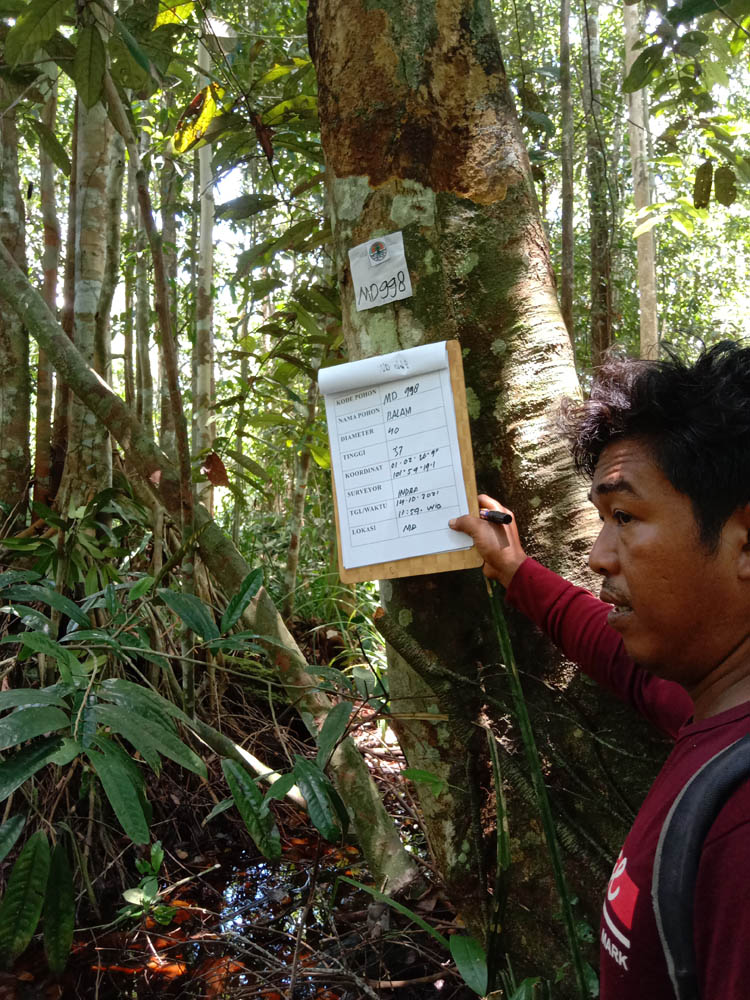 MD 998
KODE POHON MD 998
NAMA POHON BALAM
DIAMETER 40
TINGGI 37
KOORDINAT
101.59.19.1
SURVEYOR INDRA
TGL/WAKTU 14.10.2021
11:59. WIB
LOKASI MD
MARK